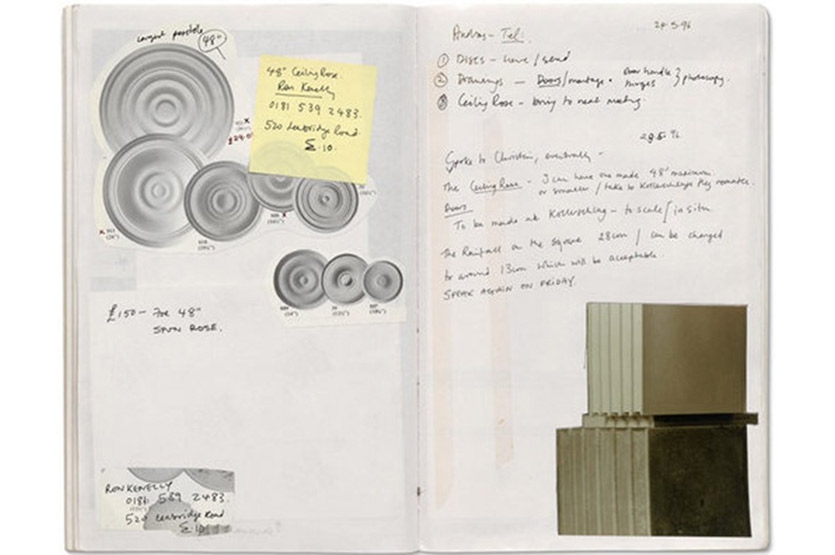 largest possible
48"
48" Ceiling Rose.
Ron Kenelly
0181 539 2483.
520 Leabridge Road.
E.10.
£150 - For 48"
SPUN ROSE.
RON KENELLY
0181 539 2483.
520 Leabridge Road
E.10
Andras - Tel:
24·5·96
① DISCS - have / send
② Drawings - Doors / montage + Door handle
hinges } photocopy.
③ Ceiling Rose - bring to next meeting.
Spoke to Christian, eventually -
The Ceiling Rose - I can have one made 48" maximum
or smaller / take to Kollerschlag they
Doors
To be made at Kollerschlag - to scale / in situ.
The on the square 28cm / can be changed
to around 13cm which will be acceptable.
SPEAK AGAIN ON FRIDAY.